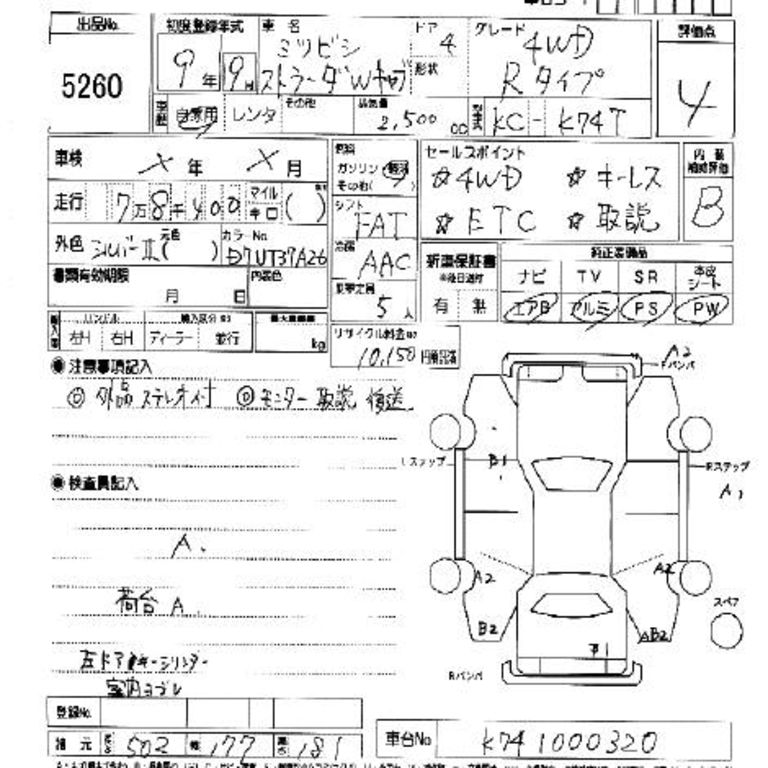 出品No. 初度登録年式 車名 ドア グレード 評価点
5260 9年 9月 ミツビシ 4 4WD 4
ストラーダWキャブ 形状 Rタイプ
車歴 自家用 レンタ その他 排気量 2,500 cc 型式 KC-K74T
車検 メ 年 メ 月 燃料 ガソリン 軽油 その他( ) セールスポイント 内装補助評価
☆4WD ☆キーレス B
走行 7万8千400 マイル キロ ( ) シフト FAT ☆ETC ☆取説
外色 シルバーII 元色( ) カラーNo. D7UT37A26 冷房 AAC 新車保証書 ※後日送付 純正装備品
書類有効期限 内装色 ナビ TV SR 本皮シート
月 日 乗車定員 5人 有 無 エアB アルミ PS PW
輸入車 ハンドル 輸入区分 最大積載量 リサイクル料金
左H 右H ディーラー 並行 kg 10,150 円預託済
◉注意事項記入 A2 Fバンパ
◎外品ステレオ付 ◎モニター取説後送
Lステップ B1 Rステップ
A1
◉検査員記入
A.
A2 A2
荷台 A. スペア
B2 AB2
左ドアキーシリンダー
室内ヨゴレ Rバンパ
登録No.
諸元 長さ 502 幅 177 高さ 181 車台No K741000320